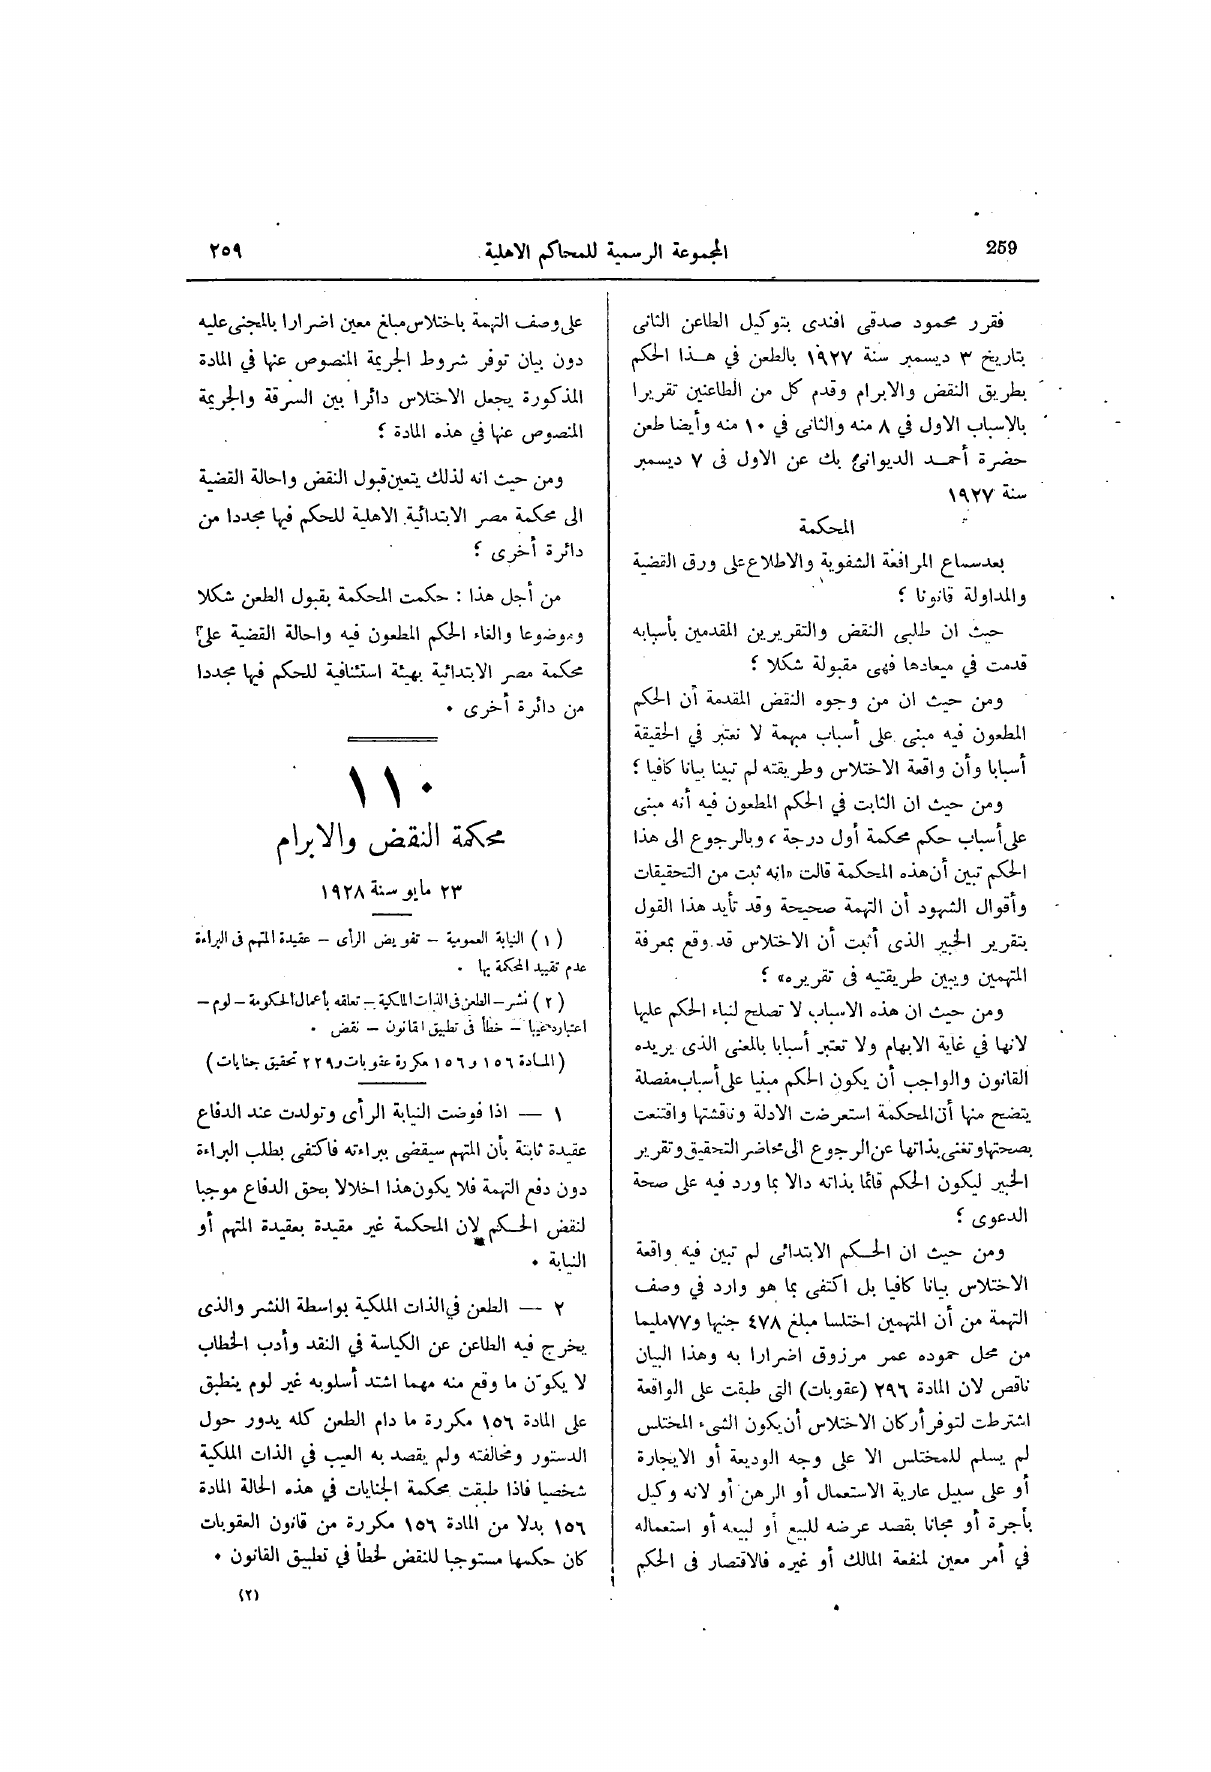 259
المجموعة الرسمية للمحاكم الاهلية
٢٥٩
فقرر محمود صدقى افندى بتوكيل الطاعن الثانى
بتاريخ ٣ ديسمبر سنة ١٩٢٧ بالطعن في هذا الحكم
بطريق النقض والابرام وقدم كل من الطاعنين تقريرا
بالاسباب الاول في ٨ منه والثانى في ١٠ منه وأيضا طعن
حضرة أحمد الديوانى بك عن الاول فى ٧ ديسمبر
سنة ١٩٢٧
المحكمة
بعد سماع المرافعة الشفوية والاطلاع على ورق القضية
والمداولة قانونا ؛
حيث ان طلبى النقض والتقريرين المقدمين بأسبابه
قدمت في ميعادها فهى مقبولة شكلا ؛
ومن حيث ان من وجوه النقض المقدمة أن الحكم
المطعون فيه مبنى على أسباب مبهمة لا تعتبر في الحقيقة
أسبابا وأن واقعة الاختلاس وطريقته لم تبينا بيانا كافيا ؛
ومن حيث ان الثابت في الحكم المطعون فيه أنه مبنى
على أسباب حكم محكمة أول درجة ، وبالرجوع الى هذا
الحكم تبين أن هذه المحكمة قالت «انه ثبت من التحقيقات
وأقوال الشهود أن التهمة صحيحة وقد تأيد هذا القول
بتقرير الخبير الذى أثبت أن الاختلاس قد وقع بمعرفة
المتهمين ويبين طريقتيه فى تقريره» ؛
ومن حيث ان هذه الاسباب لا تصلح لبناء الحكم عليها
لانها في غاية الابهام ولا تعتبر أسبابا بالمعنى الذى يريده
القانون والواجب أن يكون الحكم مبنيا على أسباب مفصلة
يتضح منها أن المحكمة استعرضت الادلة وناقشتها واقتنعت
بصحتها وتغنى بذاتها عن الرجوع الى محاضر التحقيق وتقرير
الخبير ليكون الحكم قائما بذاته دالا بما ورد فيه على صحة
الدعوى ؛
ومن حيث ان الحكم الابتدائى لم تبين فيه واقعة
الاختلاس بيانا كافيا بل اكتفى بما هو وارد في وصف
التهمة من أن المتهمين اختلسا مبلغ ٤٧٨ جنيها و٧٧مليما
من محل حموده عمر مرزوق اضرارا به وهذا البيان
ناقص لان المادة ٢٩٦ (عقوبات) التى طبقت على الواقعة
اشترطت لتوفر أركان الاختلاس أن يكون الشىء المختلس
لم يسلم للمختلس الا على وجه الوديعة أو الايجارة
أو على سبيل عارية الاستعمال أو الرهن أو لانه وكيل
بأجرة أو مجانا بقصد عرضه للبيع أو لبيعه أو استعماله
في أمر معين لمنفعة المالك أو غيره فالاقتصار فى الحكم
على وصف التهمة باختلاس مبلغ معين اضرارا بالمجنى عليه
دون بيان توفر شروط الجريمة المنصوص عنها في المادة
المذكورة يجعل الاختلاس دائرا بين السرقة والجريمة
المنصوص عنها في هذه المادة ؛
ومن حيث انه لذلك يتعين قبول النقض واحالة القضية
الى محكمة مصر الابتدائية الاهلية للحكم فيها مجددا من
دائرة أخرى ؛
من أجل هذا : حكمت المحكمة بقبول الطعن شكلا
وموضوعا والغاء الحكم المطعون فيه واحالة القضية على
محكمة مصر الابتدائية بهيئة استئنافية للحكم فيها مجددا
من دائرة أخرى .
١١٠
محكمة النقض والابرام
٢٣ مايو سنة ١٩٢٨
(١) النيابة العمومية – تفويض الرأى – عقيدة المتهم فى البراءة
عدم تقييد المحكمة بها .
(٢) نشر – الطعن فى الذات المالكية – تعلقه بأعمال الحكومة – لوم –
اعتباره عيبا – خطأ فى تطبيق القانون – نقض .
(المادة ١٥٦ و١٥٦ مكررة عقوبات و٢٢٩ تحقيق جنايات)
١ — اذا فوضت النيابة الرأى وتولدت عند الدفاع
عقيدة ثابتة بأن المتهم سيقضى ببراءته فاكتفى بطلب البراءة
دون دفع التهمة فلا يكون هذا اخلالا بحق الدفاع موجبا
لنقض الحكم لان المحكمة غير مقيدة بعقيدة المتهم أو
النيابة .
٢ — الطعن في الذات الملكية بواسطة النشر والذى
يخرج فيه الطاعن عن الكياسة في النقد وأدب الخطاب
لا يكوّن ما وقع منه مهما اشتد أسلوبه غير لوم ينطبق
على المادة ١٥٦ مكررة ما دام الطعن كله يدور حول
الدستور ومخالفته ولم يقصد به العيب في الذات الملكية
شخصيا فاذا طبقت محكمة الجنايات في هذه الحالة المادة
١٥٦ بدلا من المادة ١٥٦ مكررة من قانون العقوبات
كان حكمها مستوجبا للنقض لخطأ في تطبيق القانون .
(٢)